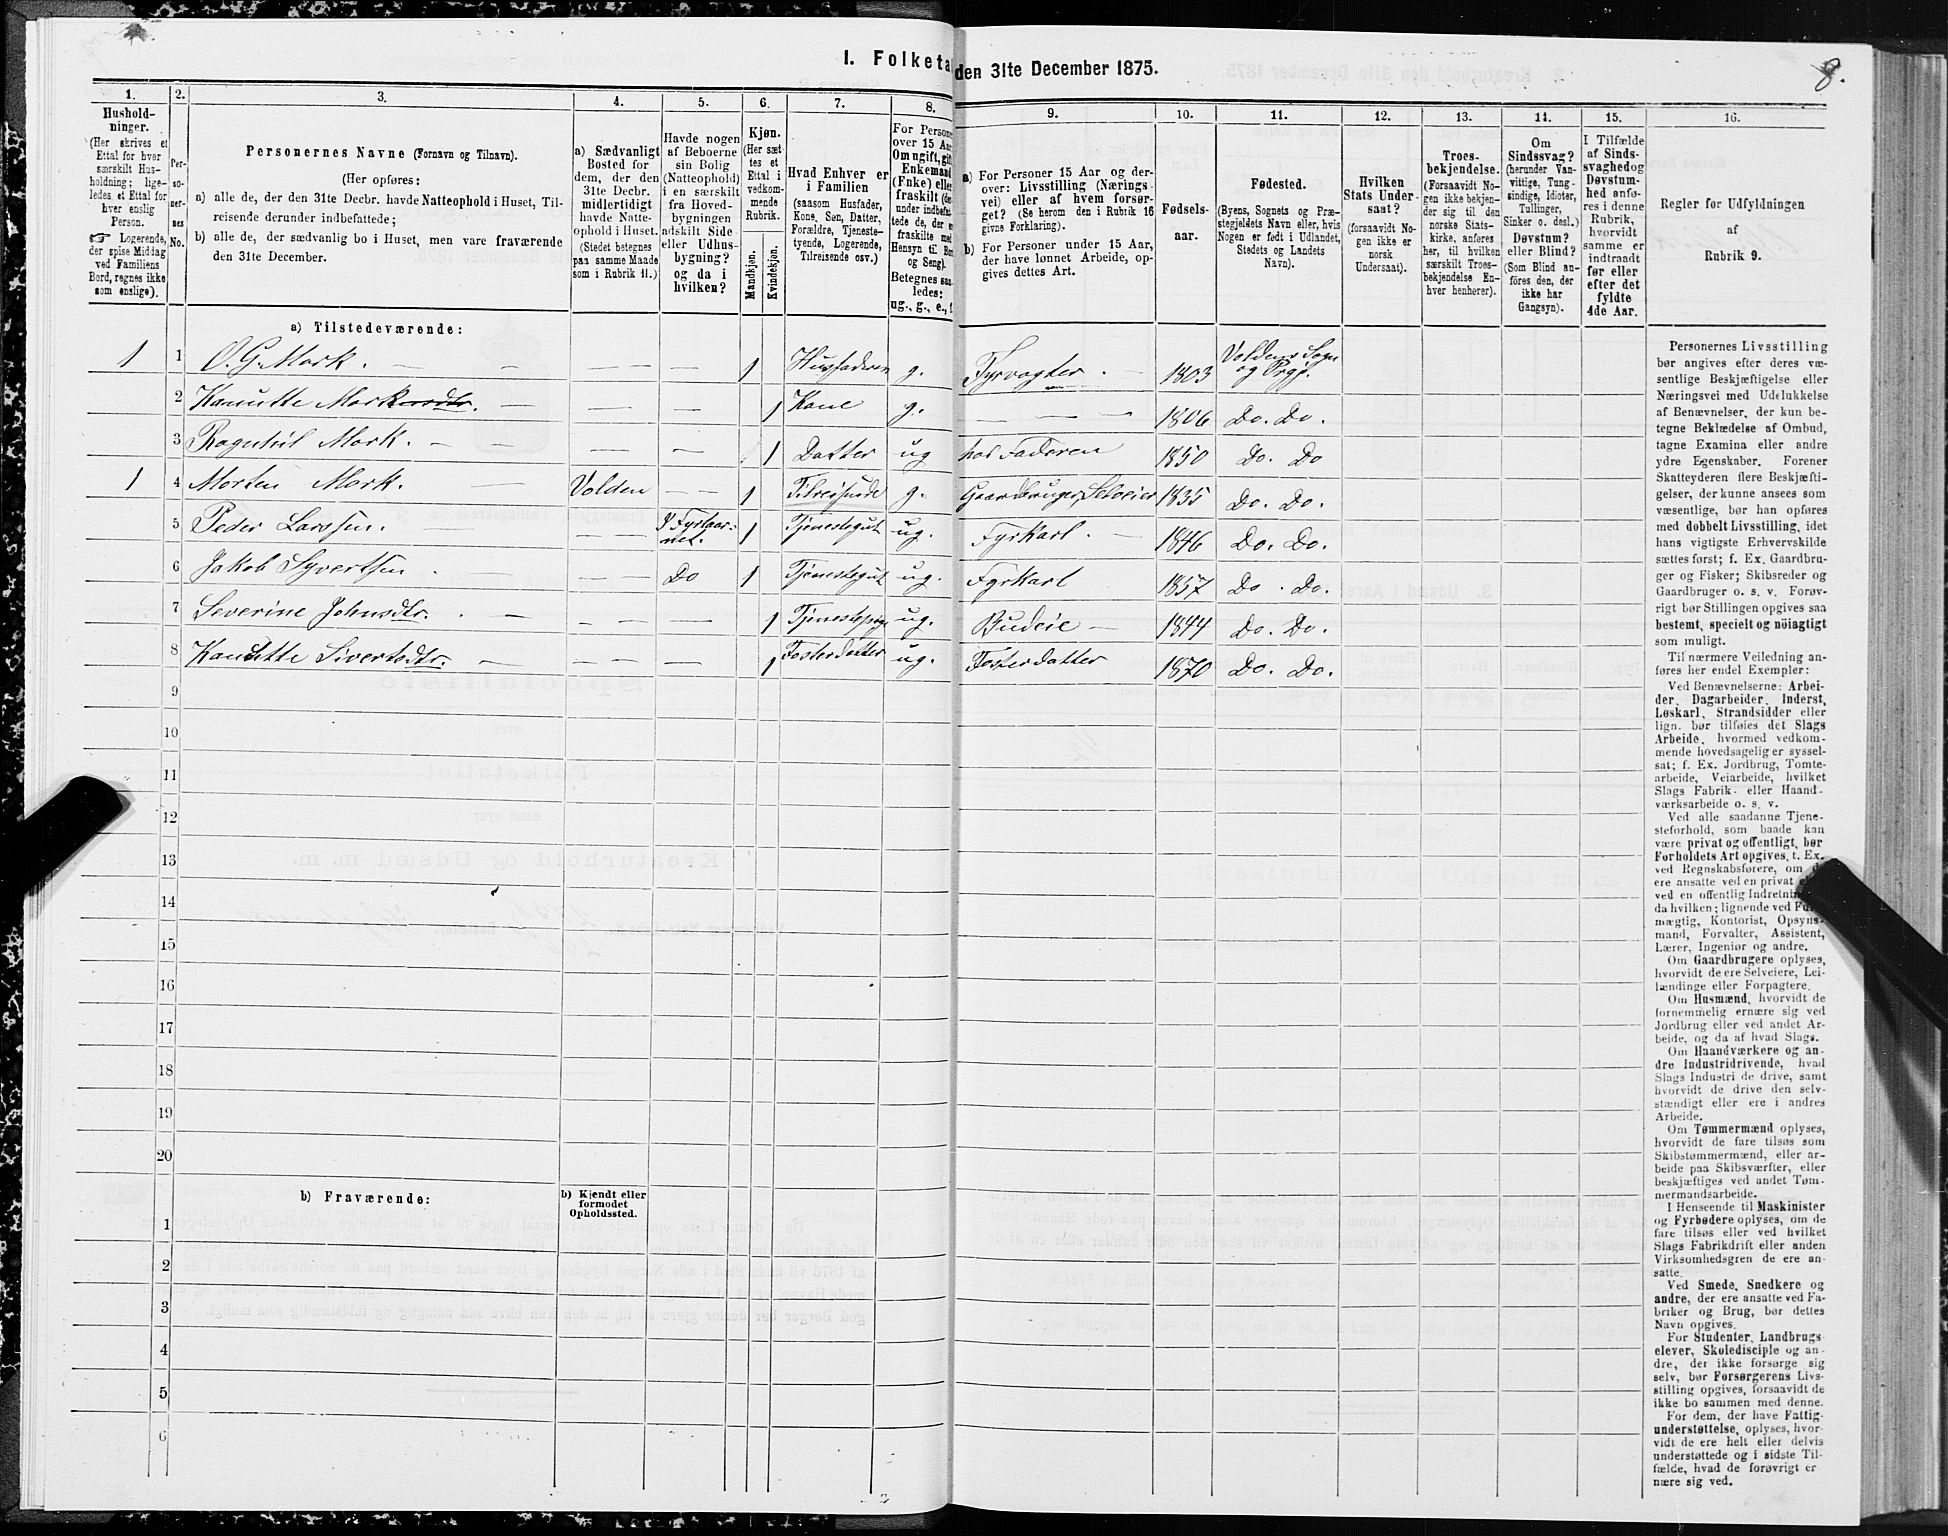 I. Folketa den 31te December 1875.
8.
1.
Hushold-
ninger.
(Her skrives et
Ettal for hver
særskilt Hus-
holdning; lige-
ledes et Ettal for
hver enslig
Person.
☞ Logerende,
der spise Middag
ved Familiens
Bord, regnes ikke
som enslige).
2.
Per-
so-
ner-
nes
No.
3.
Personernes Navne (Fornavn og Tilnavn).
(Her opføres:
a) alle de, der den 31te Decbr. havde Natteophold i Huset, Til-
reisende derunder indbefattede;
b) alle de, der sædvanlig bo i Huset, men vare fraværende
den 31te December.
4.
a) Sædvanligt
Bosted for
dem, der den
31te Decbr.
midlertidigt
havde Natte-
ophold i Huset.
(Stedet betegnes
paa samme Maade
som i Rubrik 11.)
5.
Havde nogen
af Beboerne
sin Bolig
(Natteophold)
i en særskilt
fra Hoved-
bygningen
adskilt Side-
eller Udhus-
bygning?
og da i
hvilken?
6.
Kjøn.
(Her sæt-
tes et
Ettal i
vedkom-
mende
Rubrik.
Mandkjøn.
Kvindekjøn.
7.
Hvad Enhver er
i Familien
(saasom Husfader,
Kone, Søn, Datter,
Forældre, Tjeneste-
tyende, Logerende,
Tilreisende osv.)
8.
For Persone
over 15 Aar
Om ugift, gif
Enkemand
(Enke) elle
fraskilt (der
under indbefat-
tede de, der er
fraskilte med
Hensyn til Bor
og Seng).
Betegnes saa-
ledes:
ug., g., e., f.
9.
a) For Personer 15 Aar og der-
over: Livsstilling (Nærings-
vei) eller af hvem forsør-
get? (Se herom den i Rubrik 16
givne Forklaring).
b) For Personer under 15 Aar,
der have lønnet Arbeide, op-
gives dettes Art.
10.
Fødsels-
aar.
11.
Fødested.
(Byens, Sognets og Præ-
stegjeldets Navn eller, hvis
Nogen er født i Udlandet,
Stedets og Landets
Navn).
12.
Hvilken
Stats Under-
saat?
(forsaavidt No-
gen ikke er
norsk
Undersaat).
13.
Troes-
bekjendelse.
(Forsaavidt No-
gen ikke bekjen-
der sig til den
norske Stats-
kirke, anføres
her, til hvilken
særskilt Troes-
bekjendelse En-
hver henhører).
14.
Om
Sindssvag?
(herunder Van-
vittige, Tung-
sindige, Idioter,
Tullinger,
Sinker o. desl.)
Døvstum?
eller Blind?
(Som Blind an-
føres den, der
ikke har
Gangsyn).
15.
I Tilfælde
af Sinds-
svaghed og
Døvstum-
hed anfø-
res i denne
Rubrik,
hvorvidt
samme er
indtraadt
før eller
efter det
fyldte
4de Aar.
16.
Regler for Udfyldningen
af
Rubrik 9.
a) Tilstedeværende:
1 1 O. G. Mork. — — — — 1 Husfaderen g. Fyrvogter. — 1803 Voldens Sogn og Prgj.
2 Kanutte Morknsdtr. — — — 1 Kone g. — — 1806 Do. Do.
3 Ragnhil Mork. — — — — 1 Datter ug hos Faderen 1850 Do. Do
1 4 Morten Mork. — Volden — — 1 Tilreisende g. Gaardbruger, Seloeier 1835 Do. Do.
5 Peder Larssen. — — — I Fyrtaar- net. 1 Tjenestegut ug. Fyrkarl. — 1846 Do. Do.
6 Jakob Syvertsen — — — Do 1 Tjenestegut ug. Fyrkarl 1857 Do. Do.
7 Severine Johnsdtr. — — — — 1 Tjenestepige ug. Budeie — 1844 Do. Do.
8 Kanutte Sivertsdtr. — — — — 1 Fosterdatter ug. Fosterdatter 1870 Do. Do.
9
10
11
12
13
14
15
16
17
18
19
20
b) Fraværende:
b) Kjendt eller
formodet
Opholdssted.
1
2
3
4
5
6
Personernes Livsstilling
bør angives efter deres væ-
sentlige Beskjæftigelse eller
Næringsvei med Udelukkelse
af Benævnelser, der kun be-
tegne Beklædelse af Ombud,
tagne Examina eller andre
ydre Egenskaber. Forener
Skatteyderen flere Beskjæfti-
gelser, der kunne ansees som
væsentlige, bør han opføres
med dobbelt Livsstilling, idet
hans vigtigste Erhvervskilde
sættes først; f. Ex. Gaardbru-
ger og Fisker; Skibsreder og
Gaardbruger o. s. v. Forøv-
rigt bør Stillingen opgives saa
bestemt, specielt og nöiagtigt
som muligt.
Til nærmere Veiledning an-
føres her endel Exempler:
Ved Benævnelserne: Arbei-
der, Dagarbeider, Inderst,
Løskarl, Strandsidder eller
lign. bør tilføies det Slags
Arbeide, hvormed vedkom-
mende hovedsagelig er syssel-
sat; f. Ex. Jordbrug, Tomte-
arbeide, Veiarbeide, hvilket
Slags Fabrik- eller Haand-
værksarbeide o. s. v.
Ved alle saadanne Tjene-
steforhold, som baade kan
være privat og offentligt, bør
Forholdets Art opgives, t. Ex.
ved Regnskabsførere, om d
ere ansatte ved en privat el
ved en offentlig Indretnin
da hvilken; lignende ved Fu
mægtig, Kontorist, Opsyns-
mand, Forvalter, Assistent,
Lærer, Ingeniør og andre.
Om Gaardbrugere oplyses,
hvorvidt de ere Selveiere, Lei-
lændinge eller Forpagtere.
Om Husmænd, hvorvidt de
fornemmelig ernære sig ved
Jordbrug eller ved andet Ar-
beide, og da af hvad Slags.
Om Haandværkere og an-
dre Industridrivende, hvad
Slags Industri de drive, samt
hvorvidt de drive den selv-
stændigt eller ere i andres
Arbeide.
Om Tømmermænd oplyses,
hvorvidt de fare tilsøs som
Skibstømmermænd, eller ar-
beide paa Skibsværfter, eller
beskjæftiges ved andet Tøm-
mermandsarbeide.
I Henseende til Maskinister
og Fyrbødere oplyses, om de
fare tilsøs eller ved hvilket
Slags Fabrikdrift eller anden
Virksomhedsgren de ere an-
satte.
Ved Smede, Snedkere og
andre, der ere ansatte ved Fa-
briker og Brug, bør dettes
Navn opgives.
For Studenter, Landbrugs-
elever, Skoledisciple og an-
dre, der ikke forsørge sig
selv, bør Forsørgerens Livs-
stilling opgives, forsaavidt de
ikke bo sammen med denne.
For dem, der have Fattig-
understøttelse, oplyses, hvor-
vidt de ere helt eller delvis
understøttede og i sidste Til-
fælde, hvad de forøvrigt er
nære sig ved.